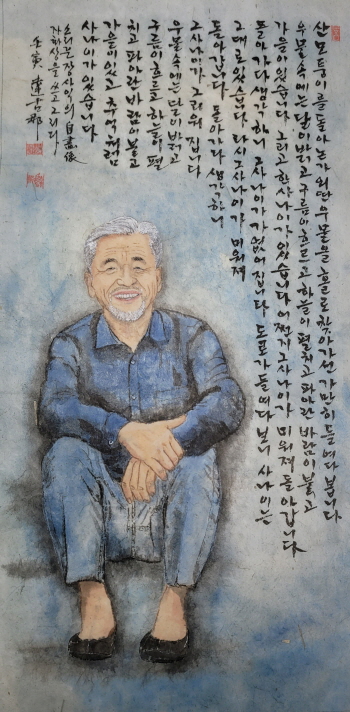 산모퉁이를 돌아 논가 외딴 우물을 홀로 찾아가선 가만히 들여다봅니다
우물속에는 달이 밝고 구름이 흐르고 하늘이 펼치고 파아란 바람이 불고
가을이 있습니다 그리고 한 사나이가 있습니다 어쩐지 그 사나이가 미워져 돌아갑니다
돌아가다 생각하니 그 사나이가 가엾어집니다 도로가 들여다보니 사나이는
그대로 있습니다 다시 그 사나이가 미워져
돌아갑니다 돌아가다 생각하니
그 사나이가 그리워집니다
우물속에는 달이 밝고
구름이 흐르고 하늘이 펼
치고 파아란 바람이 불고
가을이 있고 추억처럼
사나이가 있습니다
소리꾼 장사익의 自畵像
자화상을 쓰고 그리다
壬寅